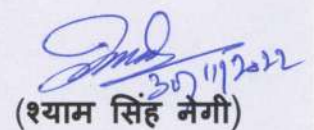 30/11/2022
(श्याम सिंह नेगी)